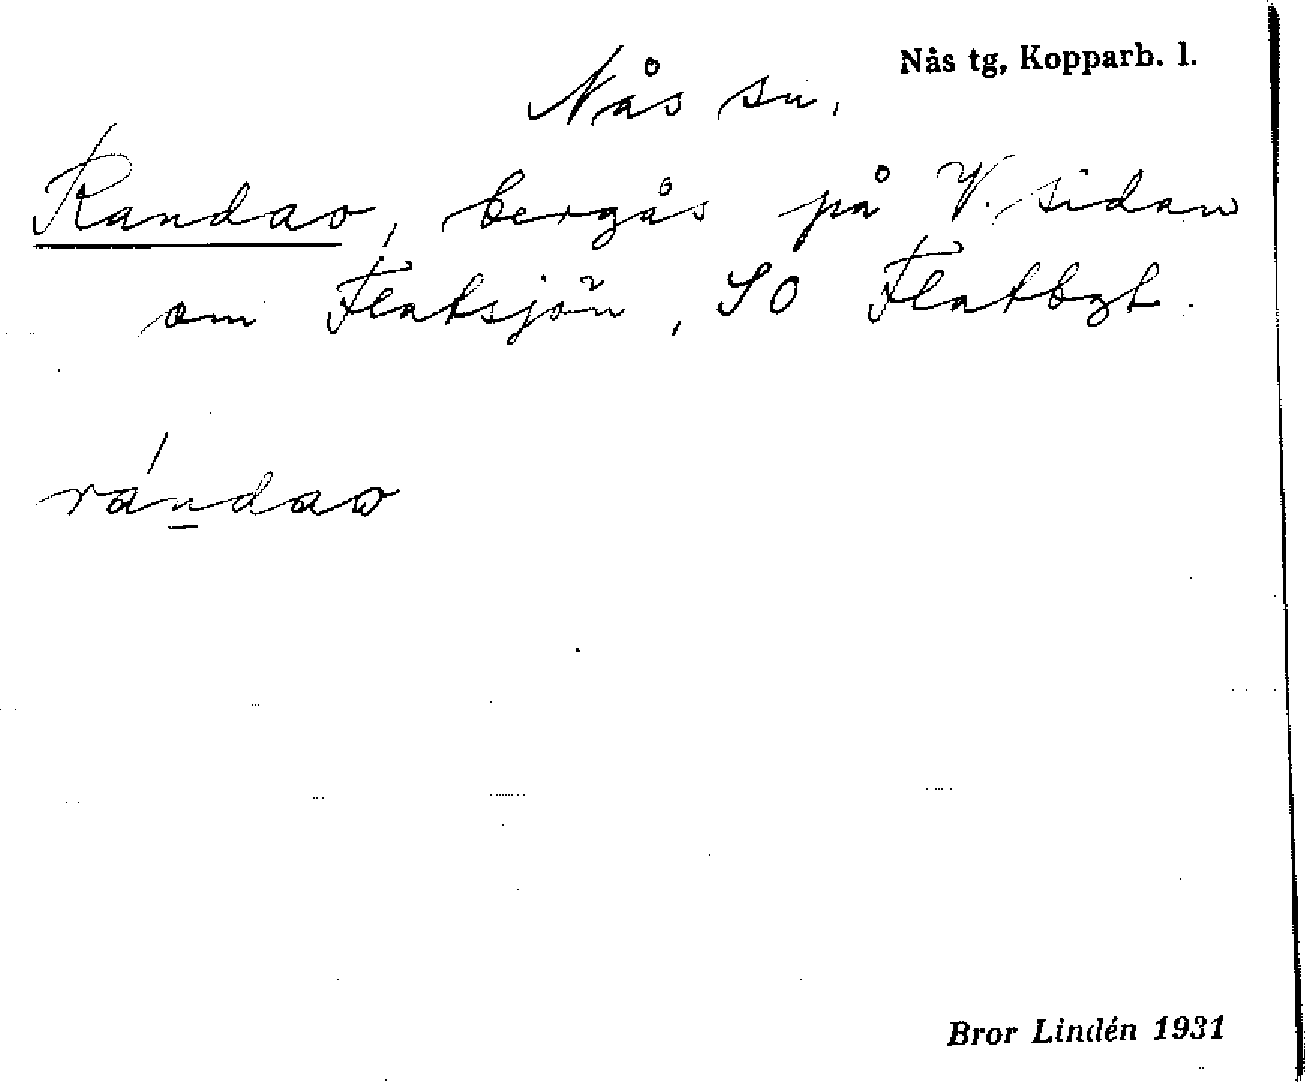 Nås tg, Kopparb. l.
Nås sn.
Randao, bergås på V. sidan
om Flatsjön, SO Flatbgt.
råndao
Bror Lindén 1931